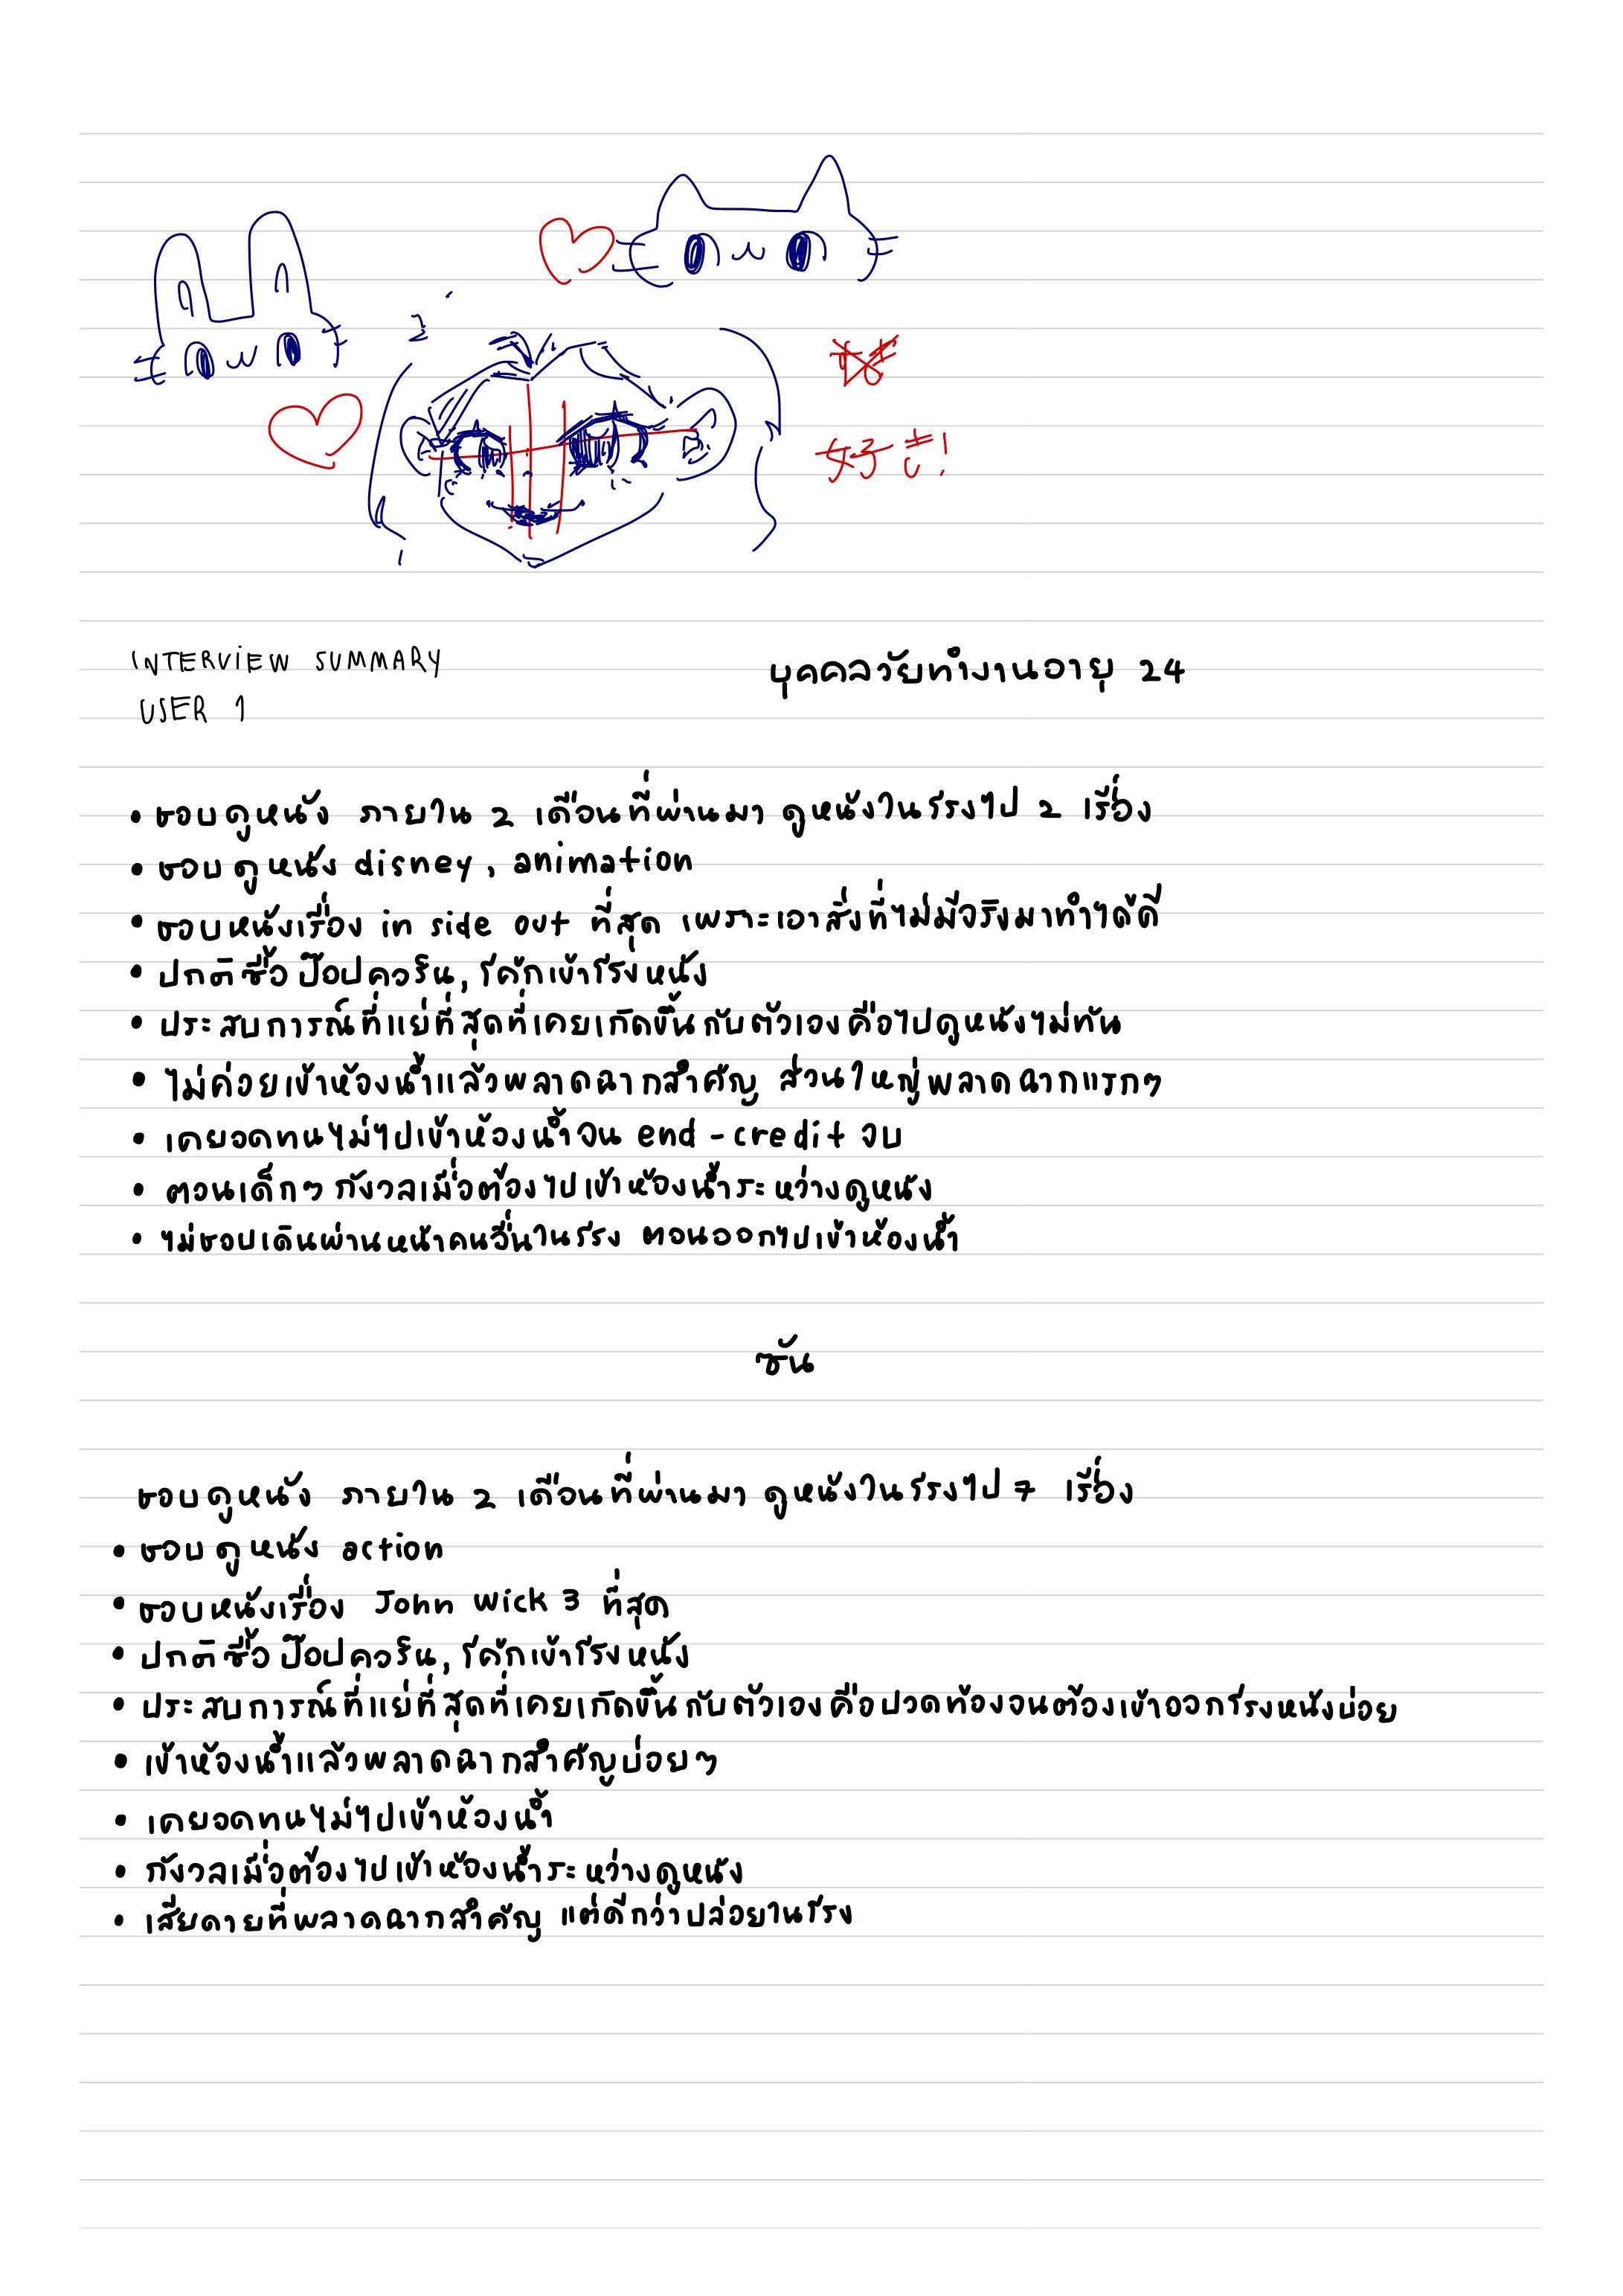 好き!
INTERVIEW SUMMARY
บุคคลวัยทำงานอายุ 24
USER 1
• ชอบดูหนัง ภายใน 2 เดือนที่ผ่านมา ดูหนังในโรงไป 2 เรื่อง
• ชอบดูหนัง disney, animation
• ชอบหนังเรื่อง in side out ที่สุด เพราะเอาสิ่งที่ไม่มีจริงมาทำได้ดี
• ปกติซื้อป๊อปคอร์น, โค้กเข้าโรงหนัง
• ประสบการณ์ที่แย่ที่สุดที่เคยเกิดขึ้นกับตัวเองคือไปดูหนังไม่ทัน
• ไม่ค่อยเข้าห้องน้ำแล้วพลาดฉากสำคัญ ส่วนใหญ่พลาดฉากแรกๆ
• เคยอดทนไม่ไปเข้าห้องน้ำจน end-credit จบ
• ตอนเด็กๆ กังวลเมื่อต้องไปเข้าห้องน้ำระหว่างดูหนัง
• ไม่ชอบเดินผ่านหน้าคนอื่นในโรง ตอนออกไปเข้าห้องน้ำ
ซัน
ชอบดูหนัง ภายใน 2 เดือนที่ผ่านมา ดูหนังในโรงไป 7 เรื่อง
• ชอบดูหนัง action
• ชอบหนังเรื่อง John Wick 3 ที่สุด
• ปกติซื้อป๊อปคอร์น, โค้กเข้าโรงหนัง
• ประสบการณ์ที่แย่ที่สุดที่เคยเกิดขึ้นกับตัวเองคือปวดท้องจนต้องเข้าออกโรงหนังบ่อย
• เข้าห้องน้ำแล้วพลาดฉากสำคัญบ่อยๆ
• เคยอดทนไม่ไปเข้าห้องน้ำ
• กังวลเมื่อต้องไปเข้าห้องน้ำระหว่างดูหนัง
• เสียดายที่พลาดฉากสำคัญ แต่ดีกว่าปล่อยในโรง